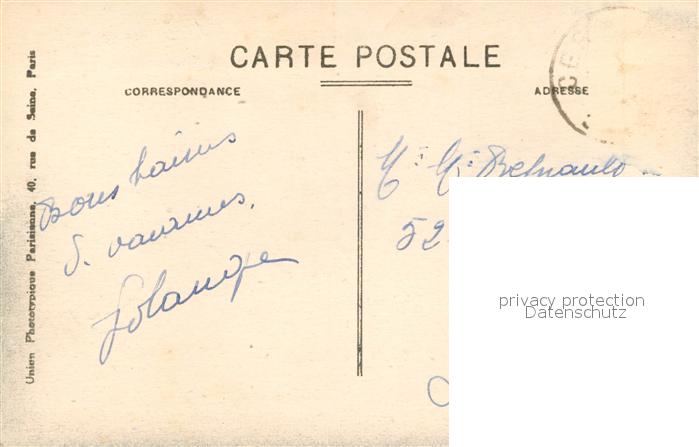 CARTE POSTALE
CORRESPONDANCE
ADRESSE
Bons baisers
d. vacances.
Solange
52
privacy protection
Datenschutz
Union Phototypique Parisienne, 40, rue de Seine, Paris